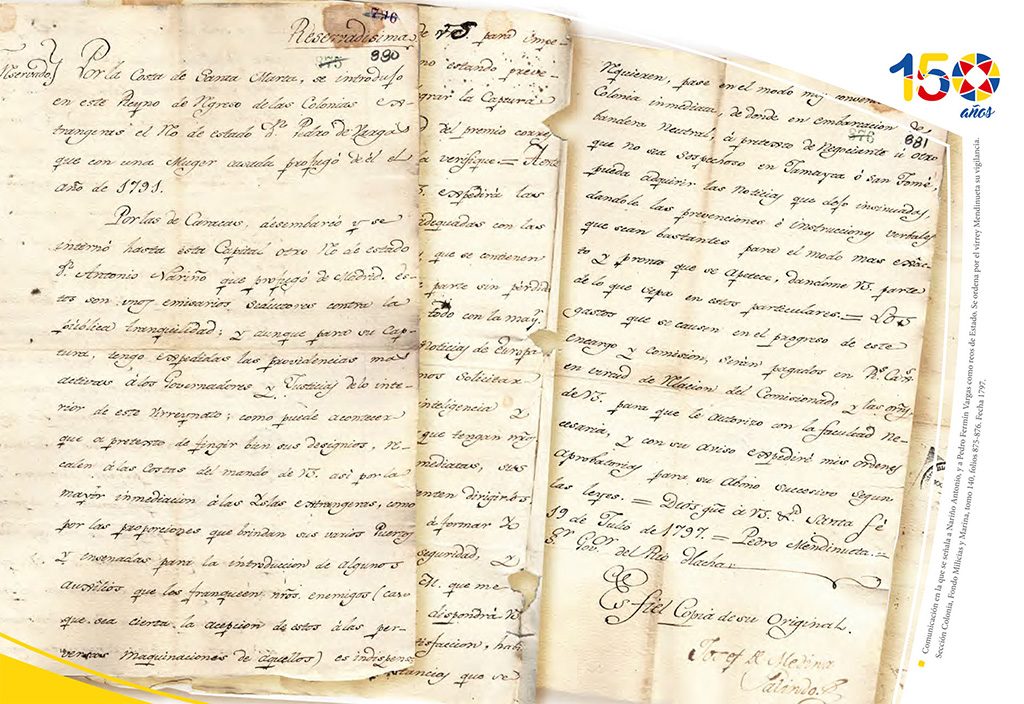 Reservadisima
776
Reservado
975
980
Por la Costa de Santa Marta, se introdujo
en este Reyno de regreso de las Colonias Ex-
trangeras el Rº de estado Dn. Pedro de Vargas
que con una Muger casada profugó de él el
año de 1791.
Por las de Caracas, desembarcó y se
internó hasta esta Capital otro Rº de estado
Dn. Antonio Nariño que profugó de Madrid. Es-
tos son unos emisarios seductores contra la
pública tranquilidad; y aunque para su Cap-
tura, tengo expedidas las providencias mas
activas á los Governadores y Justicias de lo inte-
rior de este Virreynato; como puede acontecer
que a pretexto de fingir ban sus designios, re-
calen á las Costas del mando de VS. asi por la
mayor inmediacion á las Yslas extrangeras, como
por las proporciones que brindan sus varios Puertos
y ensenadas para la introduccion de algunos
auxilios que les franqueen nros. enemigos (caso
que sea cierta la acepcion de estos á las per-
versas maquinaciones de aquellos) es indispens
de VS. para impe-
no estando preve-
grar la Captura
del premio corres
la verifique =
expedirá las
adequadas con las
que se contienen
parte sin pérdida
todo con la mayr.
Noticias de Europa
nos solicitar
inteligencia y
que tengan nros.
mediatas, sus
enten dirigirlos
á formar
seguridad, y
que me
dispondrá
isfaccion, hab
stancias que se
requieren, pase en el modo mas
Colonia inmediata, de donde en embarcacion de
876
881
bandera Neutral, á pretexto de Negociante ú otro
que no sea sospechoso en Jamayca ó San Tomé
pueda adquirir las noticias que dejo insinuadas,
dandole las prevenciones é instrucciones verbales
que sean bastantes para el modo mas exâc-
to y pronto que se apetece, dandome VS. parte
de lo que sepa en estos particulares. = Los
gastos que se causen en el progreso de este
encargo y comision, serán pagados en Rs. Caxs.
en virtud de Relacion del Comisionado y las
de VS. para que le autorizo con la facultad ne-
cesaria, y con su aviso expediré mis ordenes
aprobatorias para su abono succesivo segun
las leyes. = Dios gue á VS. ms. as. Santa Fé
19 de Julio de 1797. = Pedro Mendinueta. =
Sr. Gov. del Rio Hacha.
Es fiel Copia de su Original.
Josef de Medina
Galindo
150
años
Comunicación en la que se señala a Nariño Antonio, y a Pedro Fermín Vargas como reos de Estado. Se ordena por el virrey Mendinueta su vigilancia.
Sección Colonia. Fondo Milicias y Marina, tomo 140, folios 875-876. Fecha 1797.